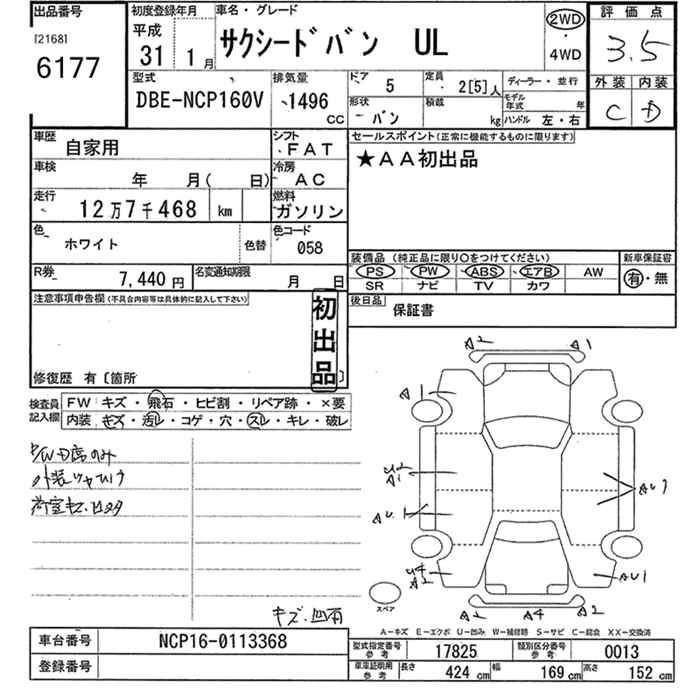 出品番号
[2168]
6177
初度登録年月
平成
31 1月
車名・グレード
サクシードバン UL
2WD
・
4WD
評価点
3.5
外装 内装
C D
型式
DBE-NCP160V
排気量
1496
CC
ドア
5
定員
2[5]人
ディーラー・並行
形状
バン
積載
kg
モデル年式
年
ハンドル 左・右
車歴
自家用
シフト
FAT
車検
年 月( 日)
冷房
AC
走行
12万7千468 km
燃料
ガソリン
色
ホワイト
色替
色コード
058
R券
7,440円
名変通知期限
月 日
セールスポイント(正常に機能するものに限ります)
★AA初出品
装備品(純正品に限り○をつけてください)
PS PW ABS エアB AW
SR ナビ TV カワ
新車保証書
有・無
後日品
保証書
注意事項申告欄(不具合内容等は具体的に記入して下さい)
初出品
修復歴 有〔箇所 〕
検査員
記入欄
FW キズ・飛石・ヒビ割・リペア跡・×要
内装 キズ・汚レ・コゲ・穴・スレ・キレ・破レ
P/W D席のみ
荷室キズ
キズ・凹有
A2 A1
A1
U2
A1
AU1
U4
A2
AU1
A2 A4 A2
スペア
A-キズ E-エクボ U-凹み W-補修跡 S-サビ C-腐食 XX-交換済
車台番号
NCP16-0113368
登録番号
型式指定番号
参考
17825
類別区分番号
参考
0013
車庫証明用
参考
長さ
424 cm
幅
169 cm
高さ
152 cm